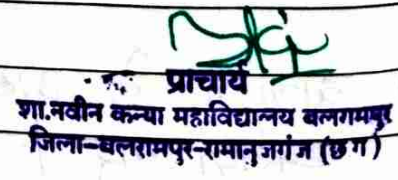 प्राचार्य
शा.नवीन कन्या महाविद्यालय बलरामपुर
जिला-बलरामपुर-रामानुजगंज (छ ग)